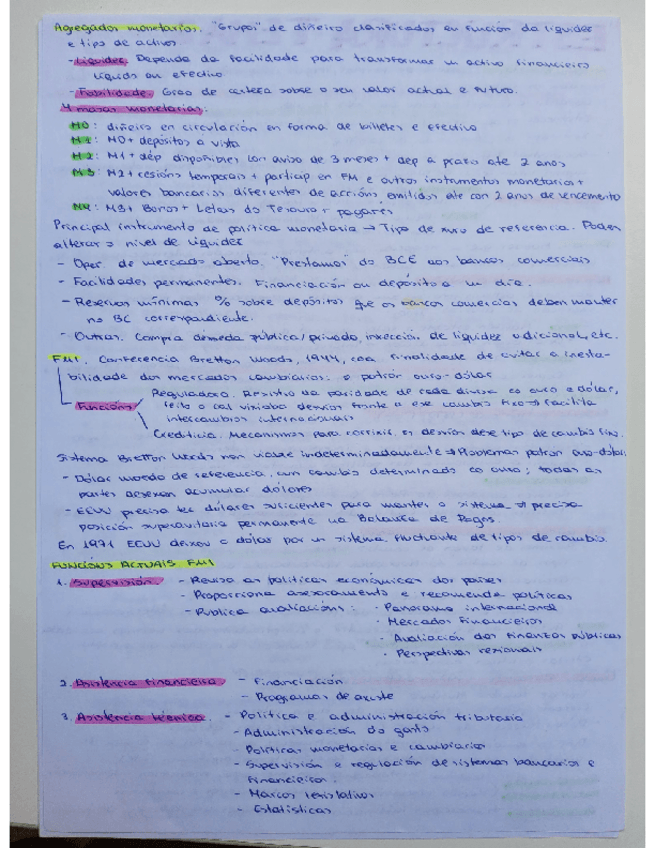 Agregados monetarios. "Grupos" de diñeiro clasificados en función da liquidez
e tipo de activos
- Liquidez. Depende da facilidade para transformar un activo financieiro
líquido ou efectivo
- Fiabilidade. Grao de certeza sobre o seu valor actual e futuro.
4 masas monetarias:
M0: diñeiro en circulación en forma de billetes e efectivo
M1: M0 + depósitos a vista
M2: M1 + dép dispoñibles con aviso de 3 meses + dep a prazo ate 2 anos
M3: M2 + cesións temporais + particip en FM e outros instrumentos monetarios +
valores bancarios diferentes de accións emitidos ate con 2 anos de vencemento
M4: M3 + Bonos + Letras do Tesouro + pagarés
Principal instrumento de política monetaria → Tipo de xuro de referencia. Poden
alterar o nivel de liquidez
- Oper. de mercado aberto. "Prestamos" do BCE aos bancos comerciais
- Facilidades permanentes. Financiación ou depósito a un día.
- Reservas mínimas % sobre depósitos que os bancos comerciais deben manter
no BC correspondente.
- Outras. Compra débeda pública/privada, inxección de liquidez adicional, etc.
FMI. Conferencia Bretton Woods, 1944, coa finalidade de evitar a inesta-
bilidade dos mercados cambiarios: o patrón ouro-dólar
Funcións
Reguladora. Rexistro da paridade de cada divisa co ouro e dólar,
feito o cal vixiaba desvíos fronte a ese cambio fixo → facilita
intercambios internacionais
Crediticia. Mecanismos para corrixir os desvíos dese tipo de cambio fixo.
Sistema Bretton Woods non viable indeterminadamente → Problemas patrón ouro-dólar
- Dólar moeda de referencia, cun cambio determinado co ouro; todas as
partes desexan acumular dólares
- EEUU precisa ter dólares suficientes para manter o sistema → precisa
posición superavitaria permanente na Balanza de Pagos.
En 1971 EEUU deixou o dólar por un sistema fluctuante de tipos de cambio
FUNCIÓNS ACTUAIS FMI
1. Supervisión. - Revisa as políticas económicas dos países
- Proporciona asesoramento e recomenda políticas
- Publica avaliacións: · Panorama internacional
· Mercados financieiros
· Avaliación das finanzas públicas
· Perspectivas rexionais
2. Asistencia financieira - Financiación
- Programas de axuste
3. Asistencia técnica. - Política e administración tributaria
- Administración do gasto
- Políticas monetarias e cambiarias
- Supervisión e regulación de sistemas bancarios e
financieiros.
- Marcos lexislativos
- Estatísticas